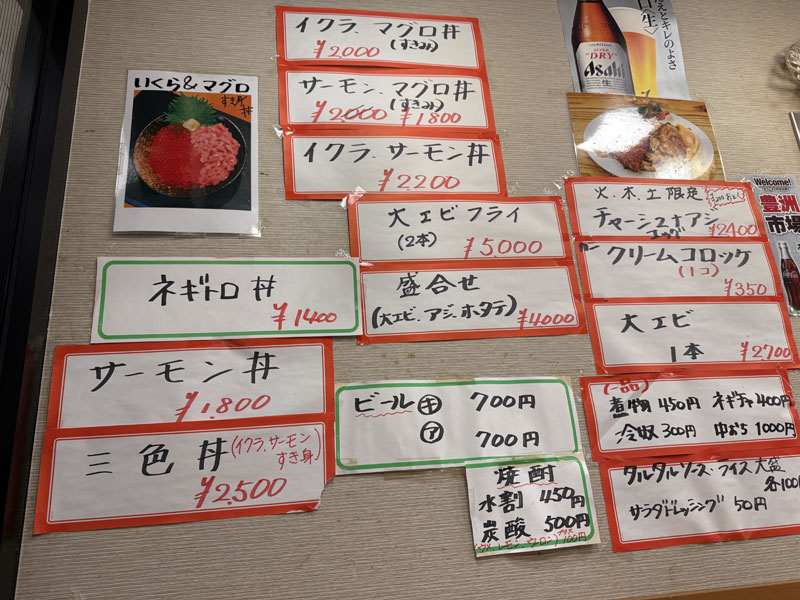 いくら&マグロ
すき身
丼
イクラ、マグロ丼
(すきみ)
¥2,000
サーモン、マグロ丼
(すきみ)
¥2000 ¥1800
イクラ、サーモン丼
¥2200
大エビフライ
(2本)
¥5,000
盛合せ
(大エビ、アジ、ホタテ)
¥4000
ネギトロ丼
¥1400
サーモン丼
¥1,800
三色丼
(イクラ、サーモン
すき身)
¥2,500
ビール ㋖ 700円
㋐ 700円
焼酎
水割 450円
炭酸 500円
レモン、ウーロン)
100円
えとキレのよさ
〈生〉
SUPER
"DRY"
Asahi
生
火、木、土限定
チャーシューアシ
エッグ
¥2400
クリームコロッケ
(1コ)
¥350
大エビ
1本 ¥2700
(一品)
煮物 450円 ネギチャ 400円
冷奴 300円 中おち 1000円
タルタルソース・ライス大盛
各100
サラダドレッシング 50円
Welcome!
豊洲
市場